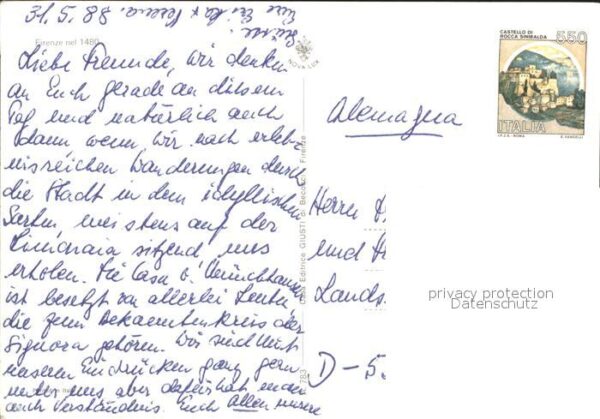 31.5.88.
Grüsse.
Firenze nel 1480
Liebe Freunde, wir denken
an Euch gerade an diesem
Tag und natürlich auch
dann wenn wir nach erleb-
nisreichen Wanderungen durch
die Stadt in dem idyllischen
Garten, meistens auf der
Limonaia sitzend, uns
erholen. Die Casa
ist besetzt von allerlei Leute,
die zum Bekanntenkreis der
Signora gehören. Wir sind mit
unseren Eindrücken ganz gern
unter uns aber dafür hat man
auch Verständnis. Euch Allen unsere
NOVA LUX
Casa Editrice GIUSTI di Becocci - Firenze
783
CASTELLO DI
ROCCA SINIBALDA
550
ITALIA
I.P.Z.S. - ROMA
Alemagna
Herrn
und
Lands.
D-5.
privacy protection
Datenschutz